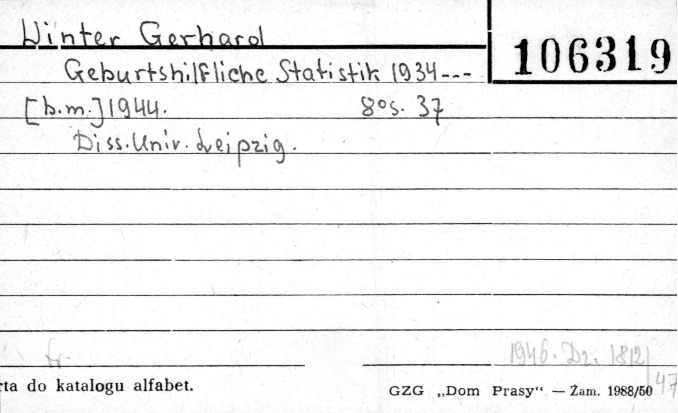 Winter Gerhard
106319
Geburtshilfliche Statistik 1934---
[b.m.] 1944. 8os. 37
Diss. Univ. Leipzig.
1946. Dz. 1812/47
rta do katalogu alfabet.
GZG „Dom Prasy“ — Zam. 1988/50